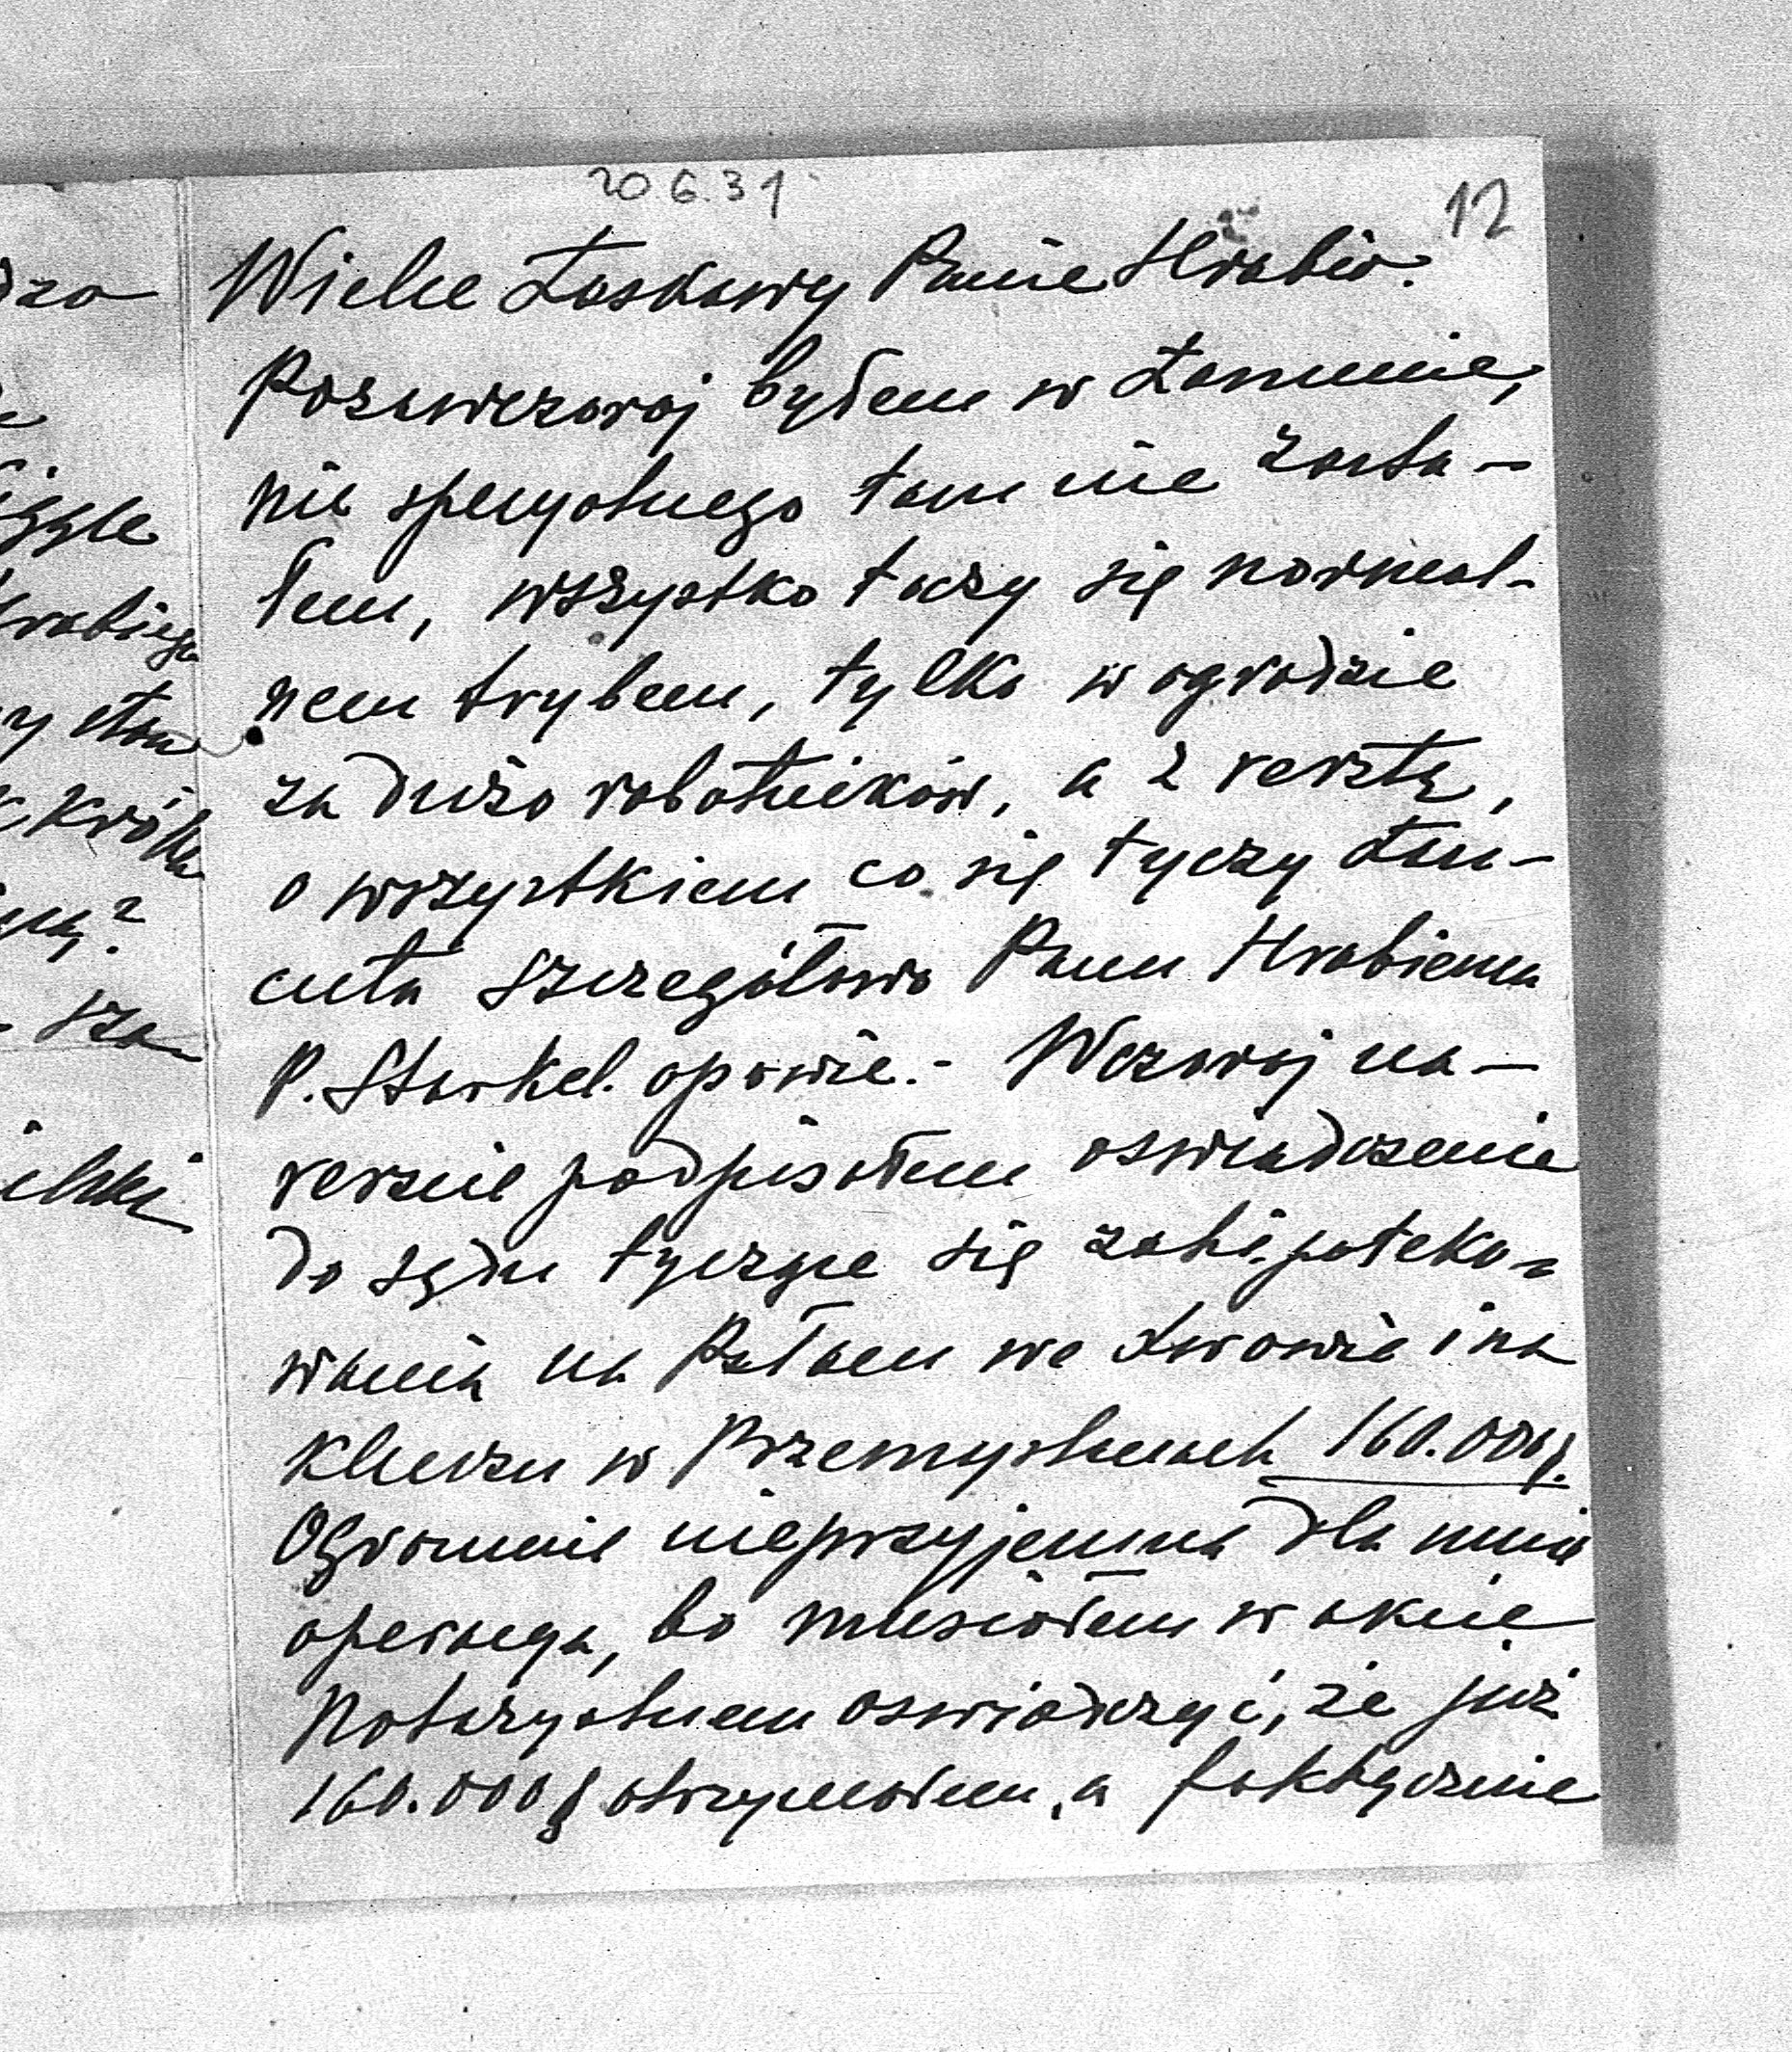 20.6.31
12
Wielce Łaskawy Panie Hrabio.
Pozawczoraj byłem w Łancucie,
nic specyalnego tam nie zasta-
łem, wszystko toczy się normal-
nem trybem, tylko w ogrodzie
za dużo robotników, a z resztą,
o wszystkiem co się tyczy Łań-
cuta szczegółowo Panu Hrabiemu
P. Starkel. opowie.- Wczoraj na-
reszcie podpisałem oswiadczenie
do sądu tyczące się zahipoteko-
wania na Pałacu we Lwowie i na
Kluczu w Przemyslanach 160.000
Ogromnie nieprzyjemna dla mnie
operacya, bo musiałem w akcie
Notaryalnem oswiadczyć, że już
160.000 otrzymałem, a faktycznie
dzo
Hrabiego
stan
sza-